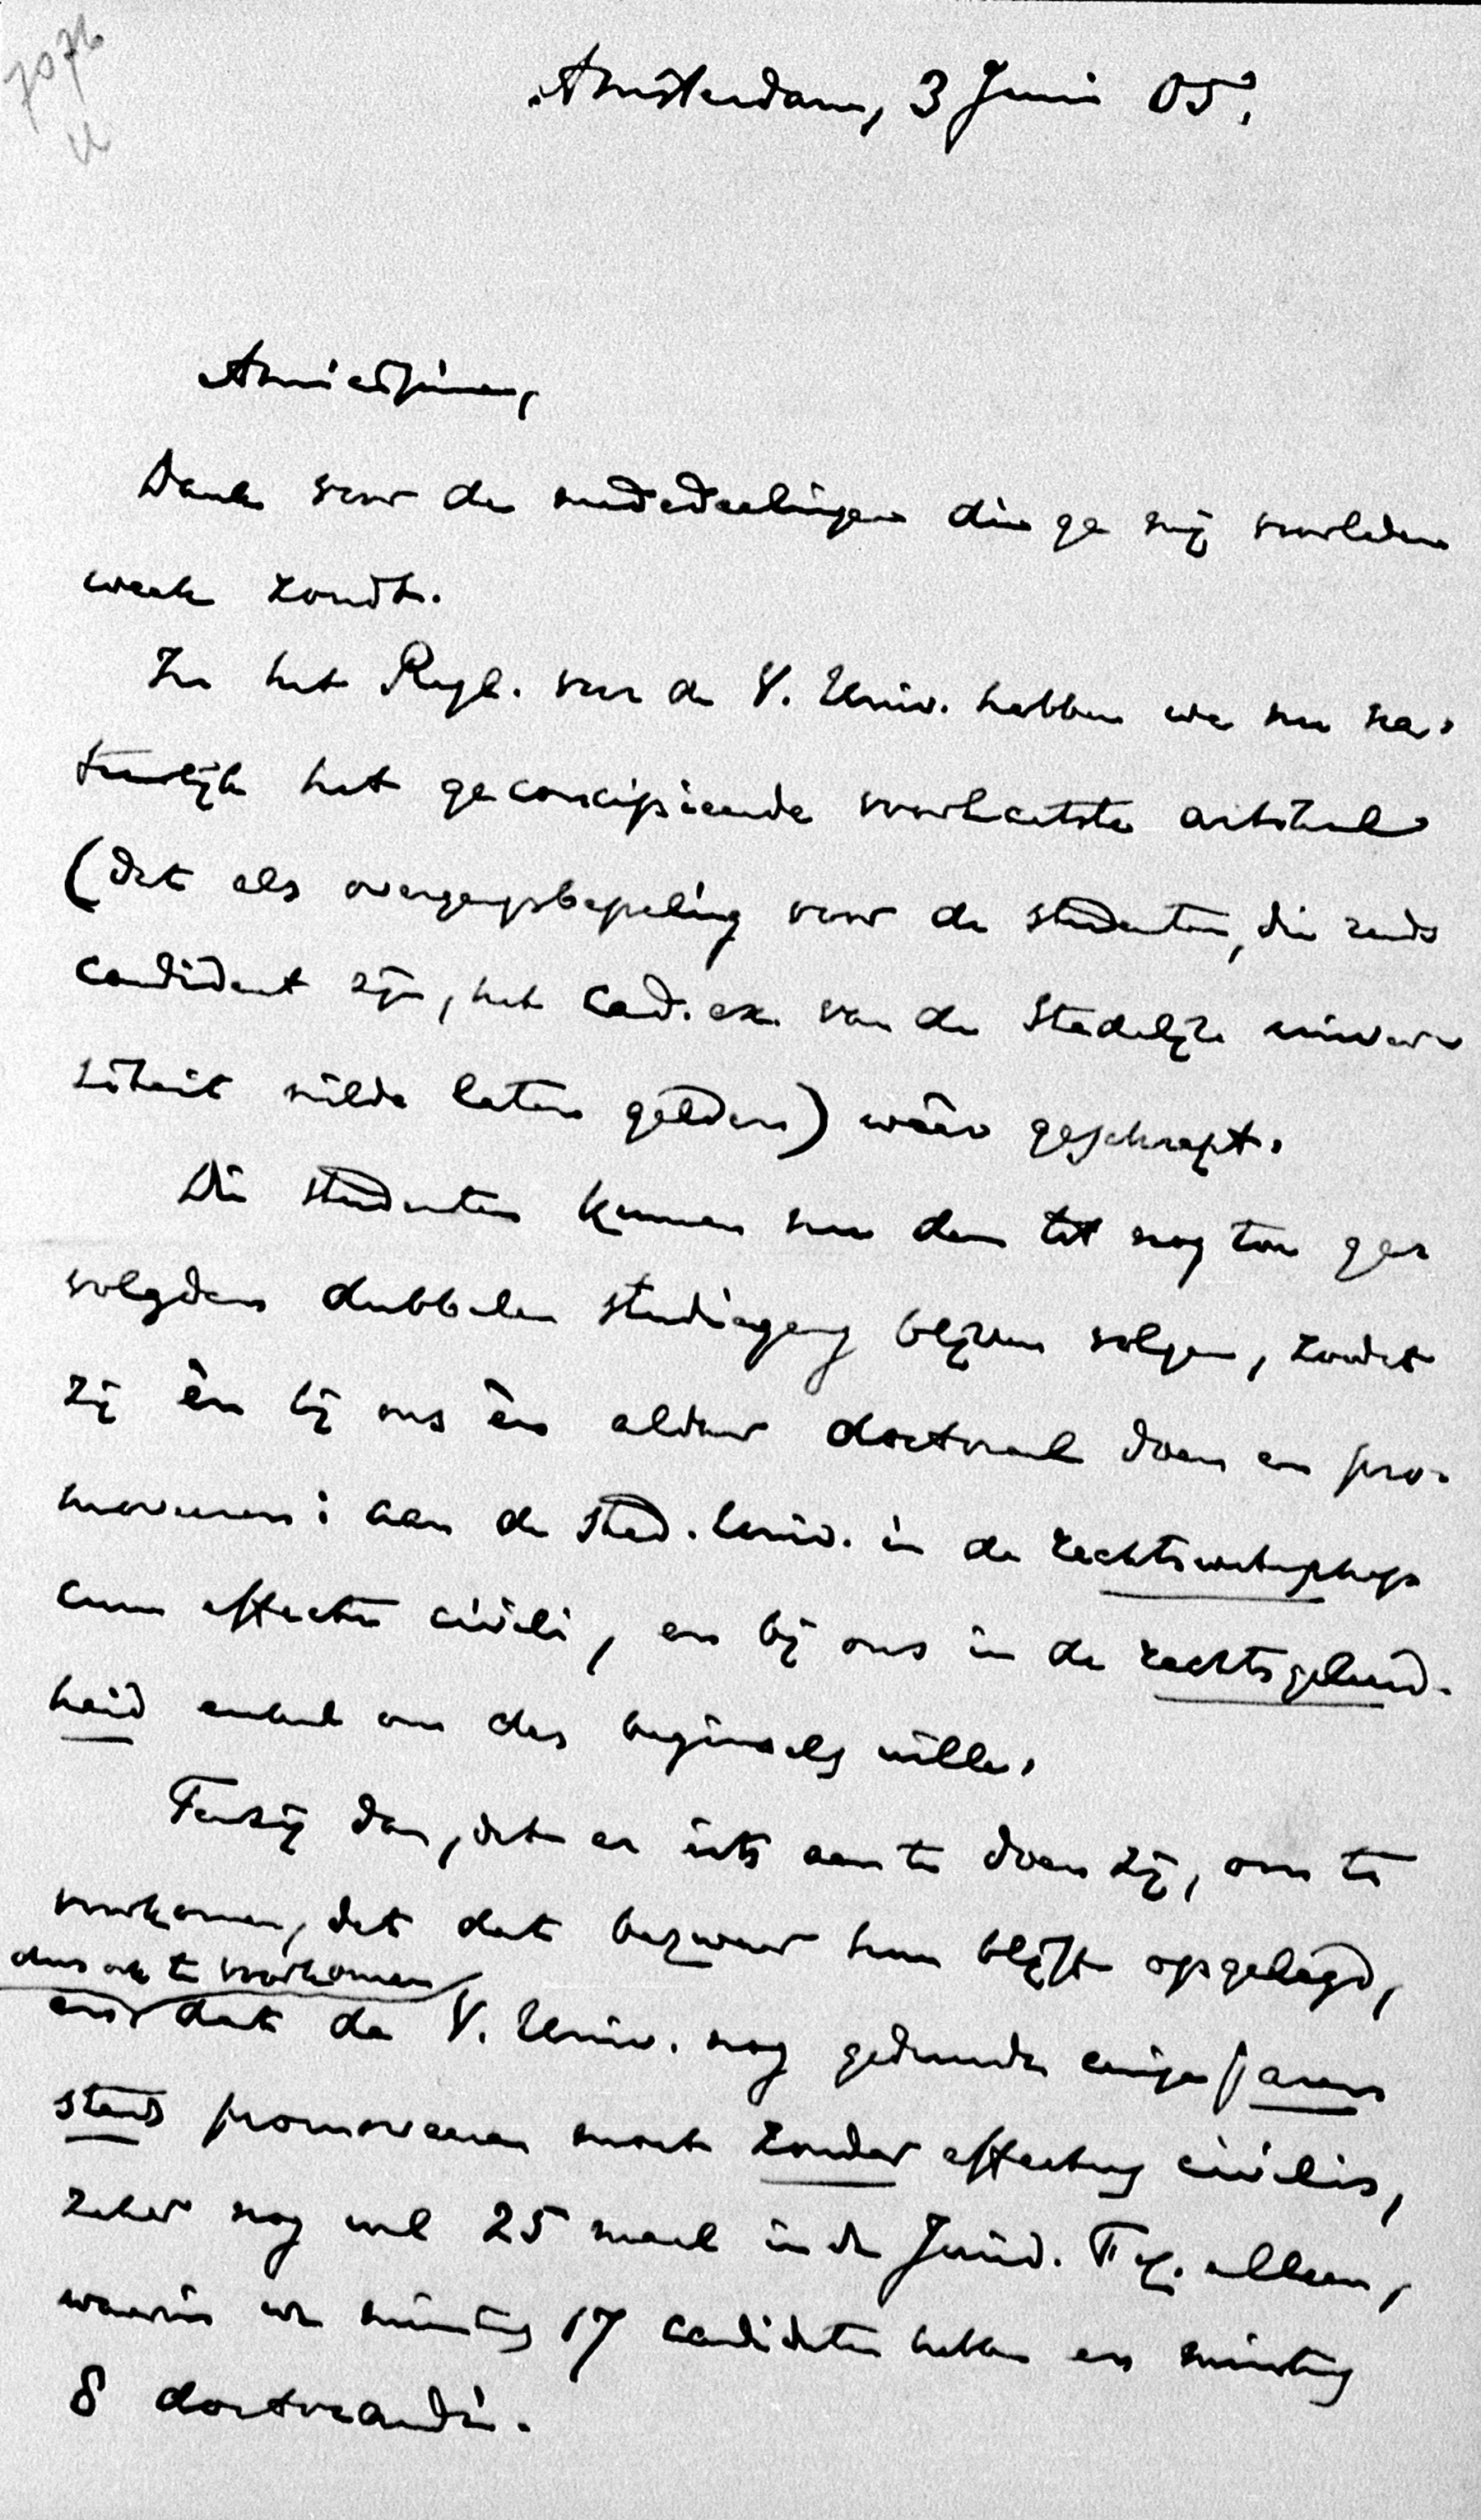 7076
Amsterdam, 3 Juni 05.
Amicissime,
Dank voor de mededeelingen die ge mij voorleden
week zondt.
In het Regl. van de V. Univ. hebben we nu na-
tuurlijk het geconcipieerde voorlaatste artikel
(dat als overgangsbepaling voor de studenten, die reeds
candidaat zijn, het cand. ex. van de Stedelijke univer-
siteit wilde laten gelden) wêer geschrapt.
Die studenten kunnen nu den tot nog toe ge-
volgden dubbelen studiegang blijven volgen, zoodat
zij èn bij ons èn aldaar doctoraal doen en pro-
moveeren: aan de Sted. Univ. in de rechtswetenschap
cum effectu civili, en bij ons in de rechtsgeleerd-
heid enkel om des beginsels wille.
Tenzij dan, dat er iets aan te doen zij, om te
voorkomen, dat dat bezwaar hun blijft opgelegd,
dus ook te voorkomen
en dat de V. Univ. nog gedurende eenige jaren
steeds promoveeren moet zonder effectus civilis,
zeker nog wel 25 maal in de Jurid. Fac. alleen,
waarin we minstens 17 candidaten hebben en minstens
8 doctorandi.